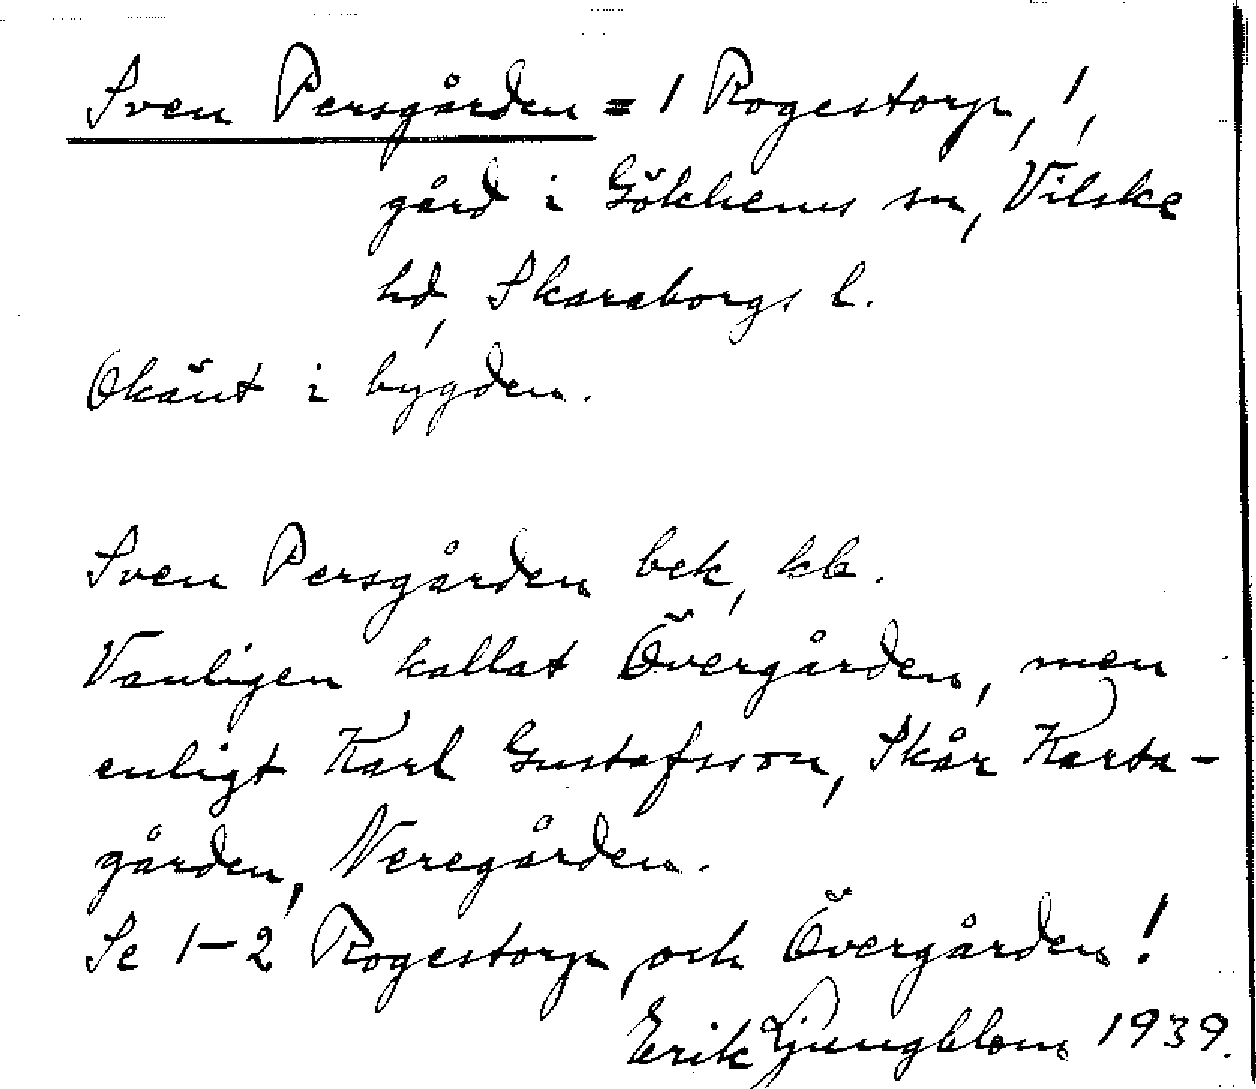 Sven Persgården = 1 Rogestorp, 1,
gård i Gökhems sn, Vilske
hd, Skaraborgs l.
Okänt i bygden.
Sven Persgården bek, kb.
Vanligen kallat Övergården, men
enligt Karl Gustafsson, Skår Karta-
gården, Neregården.
Se 1-2 Rogestorp och Övergården!
Erik Ljungblom 1939.